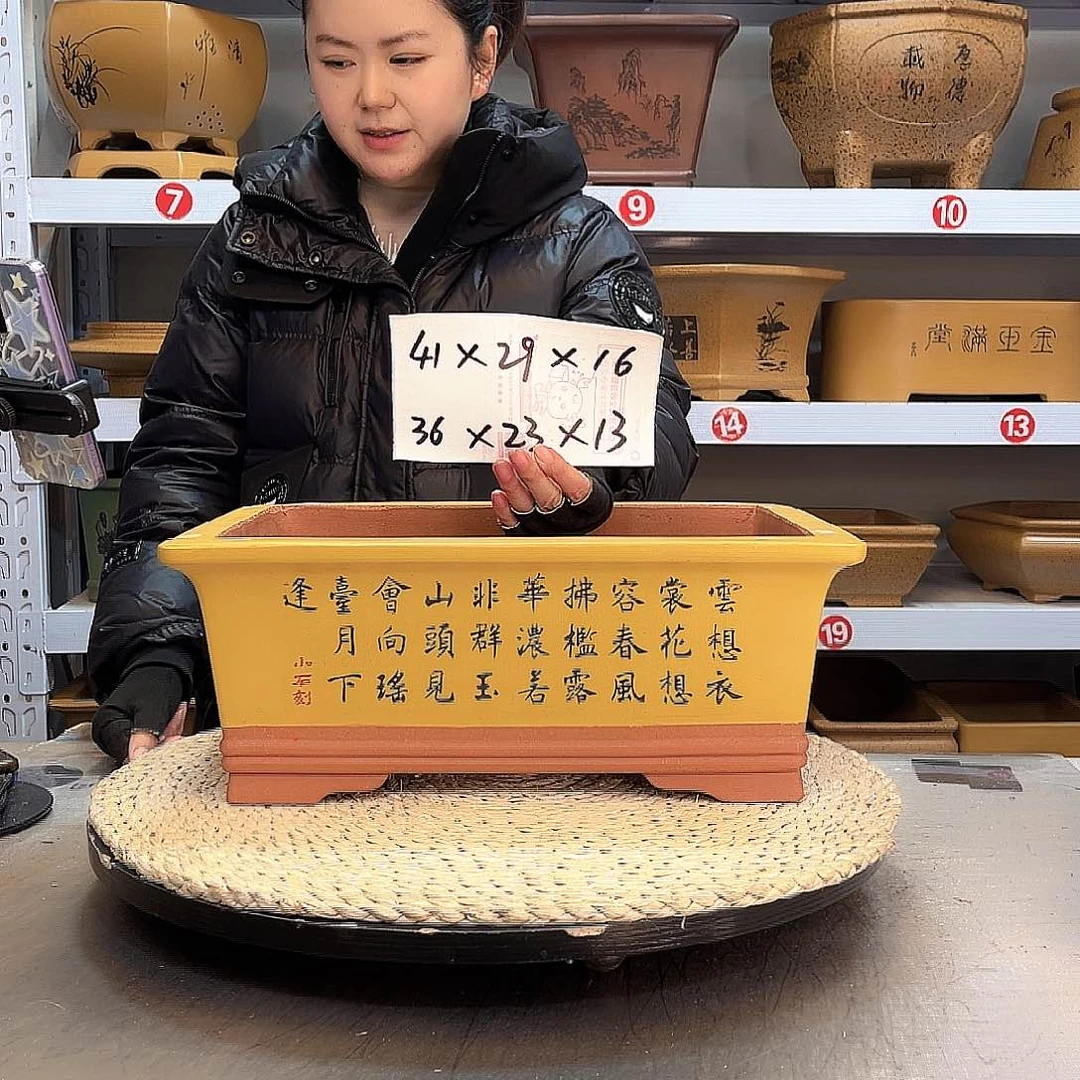 清
雅
厚德
載物
7
9
10
41×29×16
36×23×13
上善
金玉滿堂
14
13
雲想衣
裳花想
容春風
拂檻露
華濃若
非群玉
山頭見
會向瑤
臺月下
逢
小石刻
19